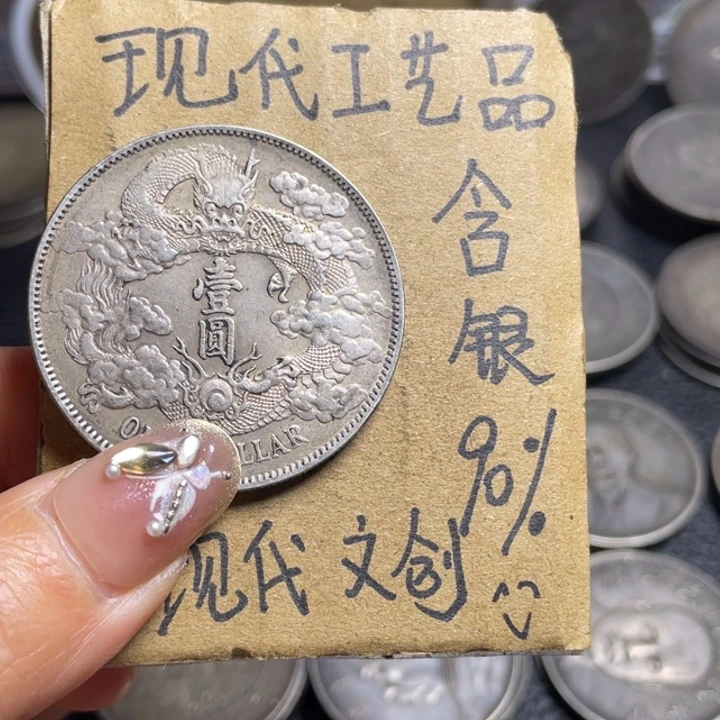 现代工艺品
含
银
90%
现代文创
壹
圓
ONE DOLLAR